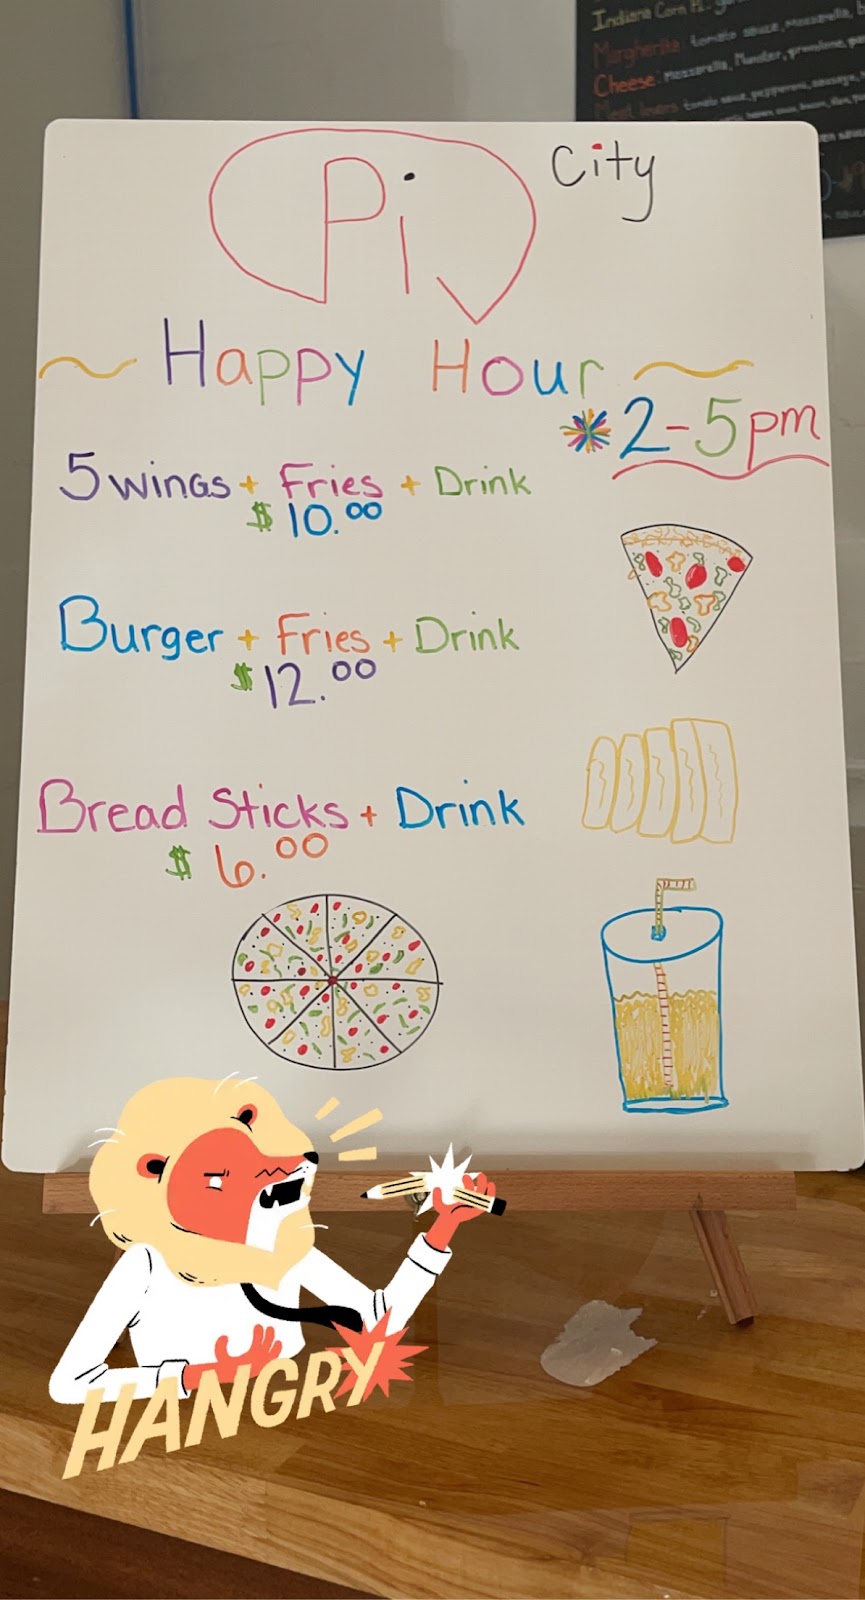 Indiana Corn Pi:
Margherita: tomato sauce, mozzarella,
Cheese: mozzarella, Munster, provolone,
Meat lovers tomato sauce, pepperoni, sausage,
Pi
City
~ Happy Hour ~
*2-5pm
5 wings + Fries + Drink
$10.00
Burger + Fries + Drink
$12.00
Bread Sticks + Drink
$6.00
HANGRY